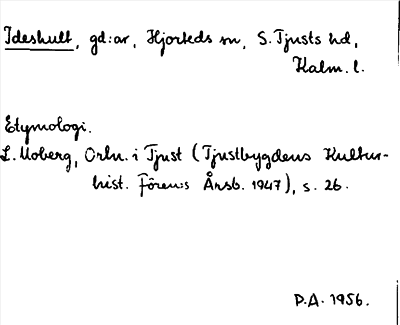 Ideshult, gd:ar, Hjorteds sn, S. Tjusts hd,
Kalm. l.
Etymologi.
L. Moberg, Ortn. i Tjust (Tjustbygdens Kultur-
hist. Fören:s Årsb. 1947), s. 26.
P.A. 1956.